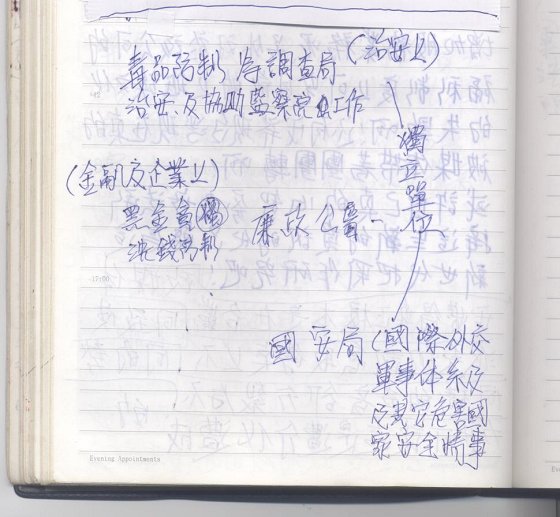 (治安上)
毒品防制 為調查局
治安及協助監察院工作
獨立單位
(金融及企業上)
黑金貪獨
洗錢防制
廉政公署－
國安局(國際外交
軍事体系及
危害國
家安全情事
17:00
Evening Appointments